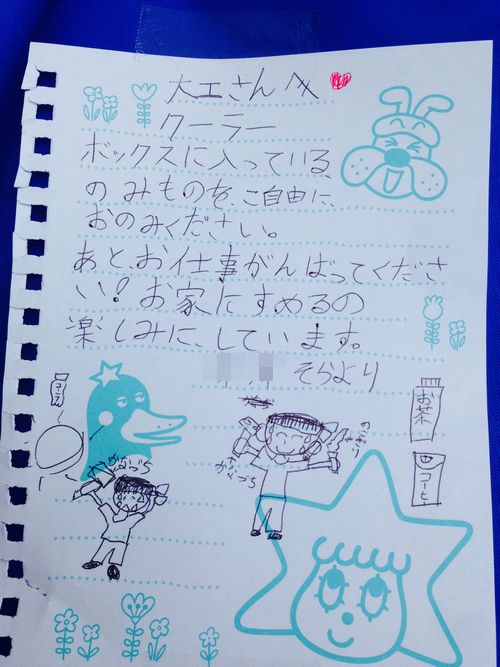 大工さんへ
クーラー
ボックスに入っている、
のみものを、ご自由に、
おのみください。
あと、お仕事がんばってくださ
い!お家にすめるの
楽しみに、しています。
そらより
お茶
コーヒー
かなづち
かなづち